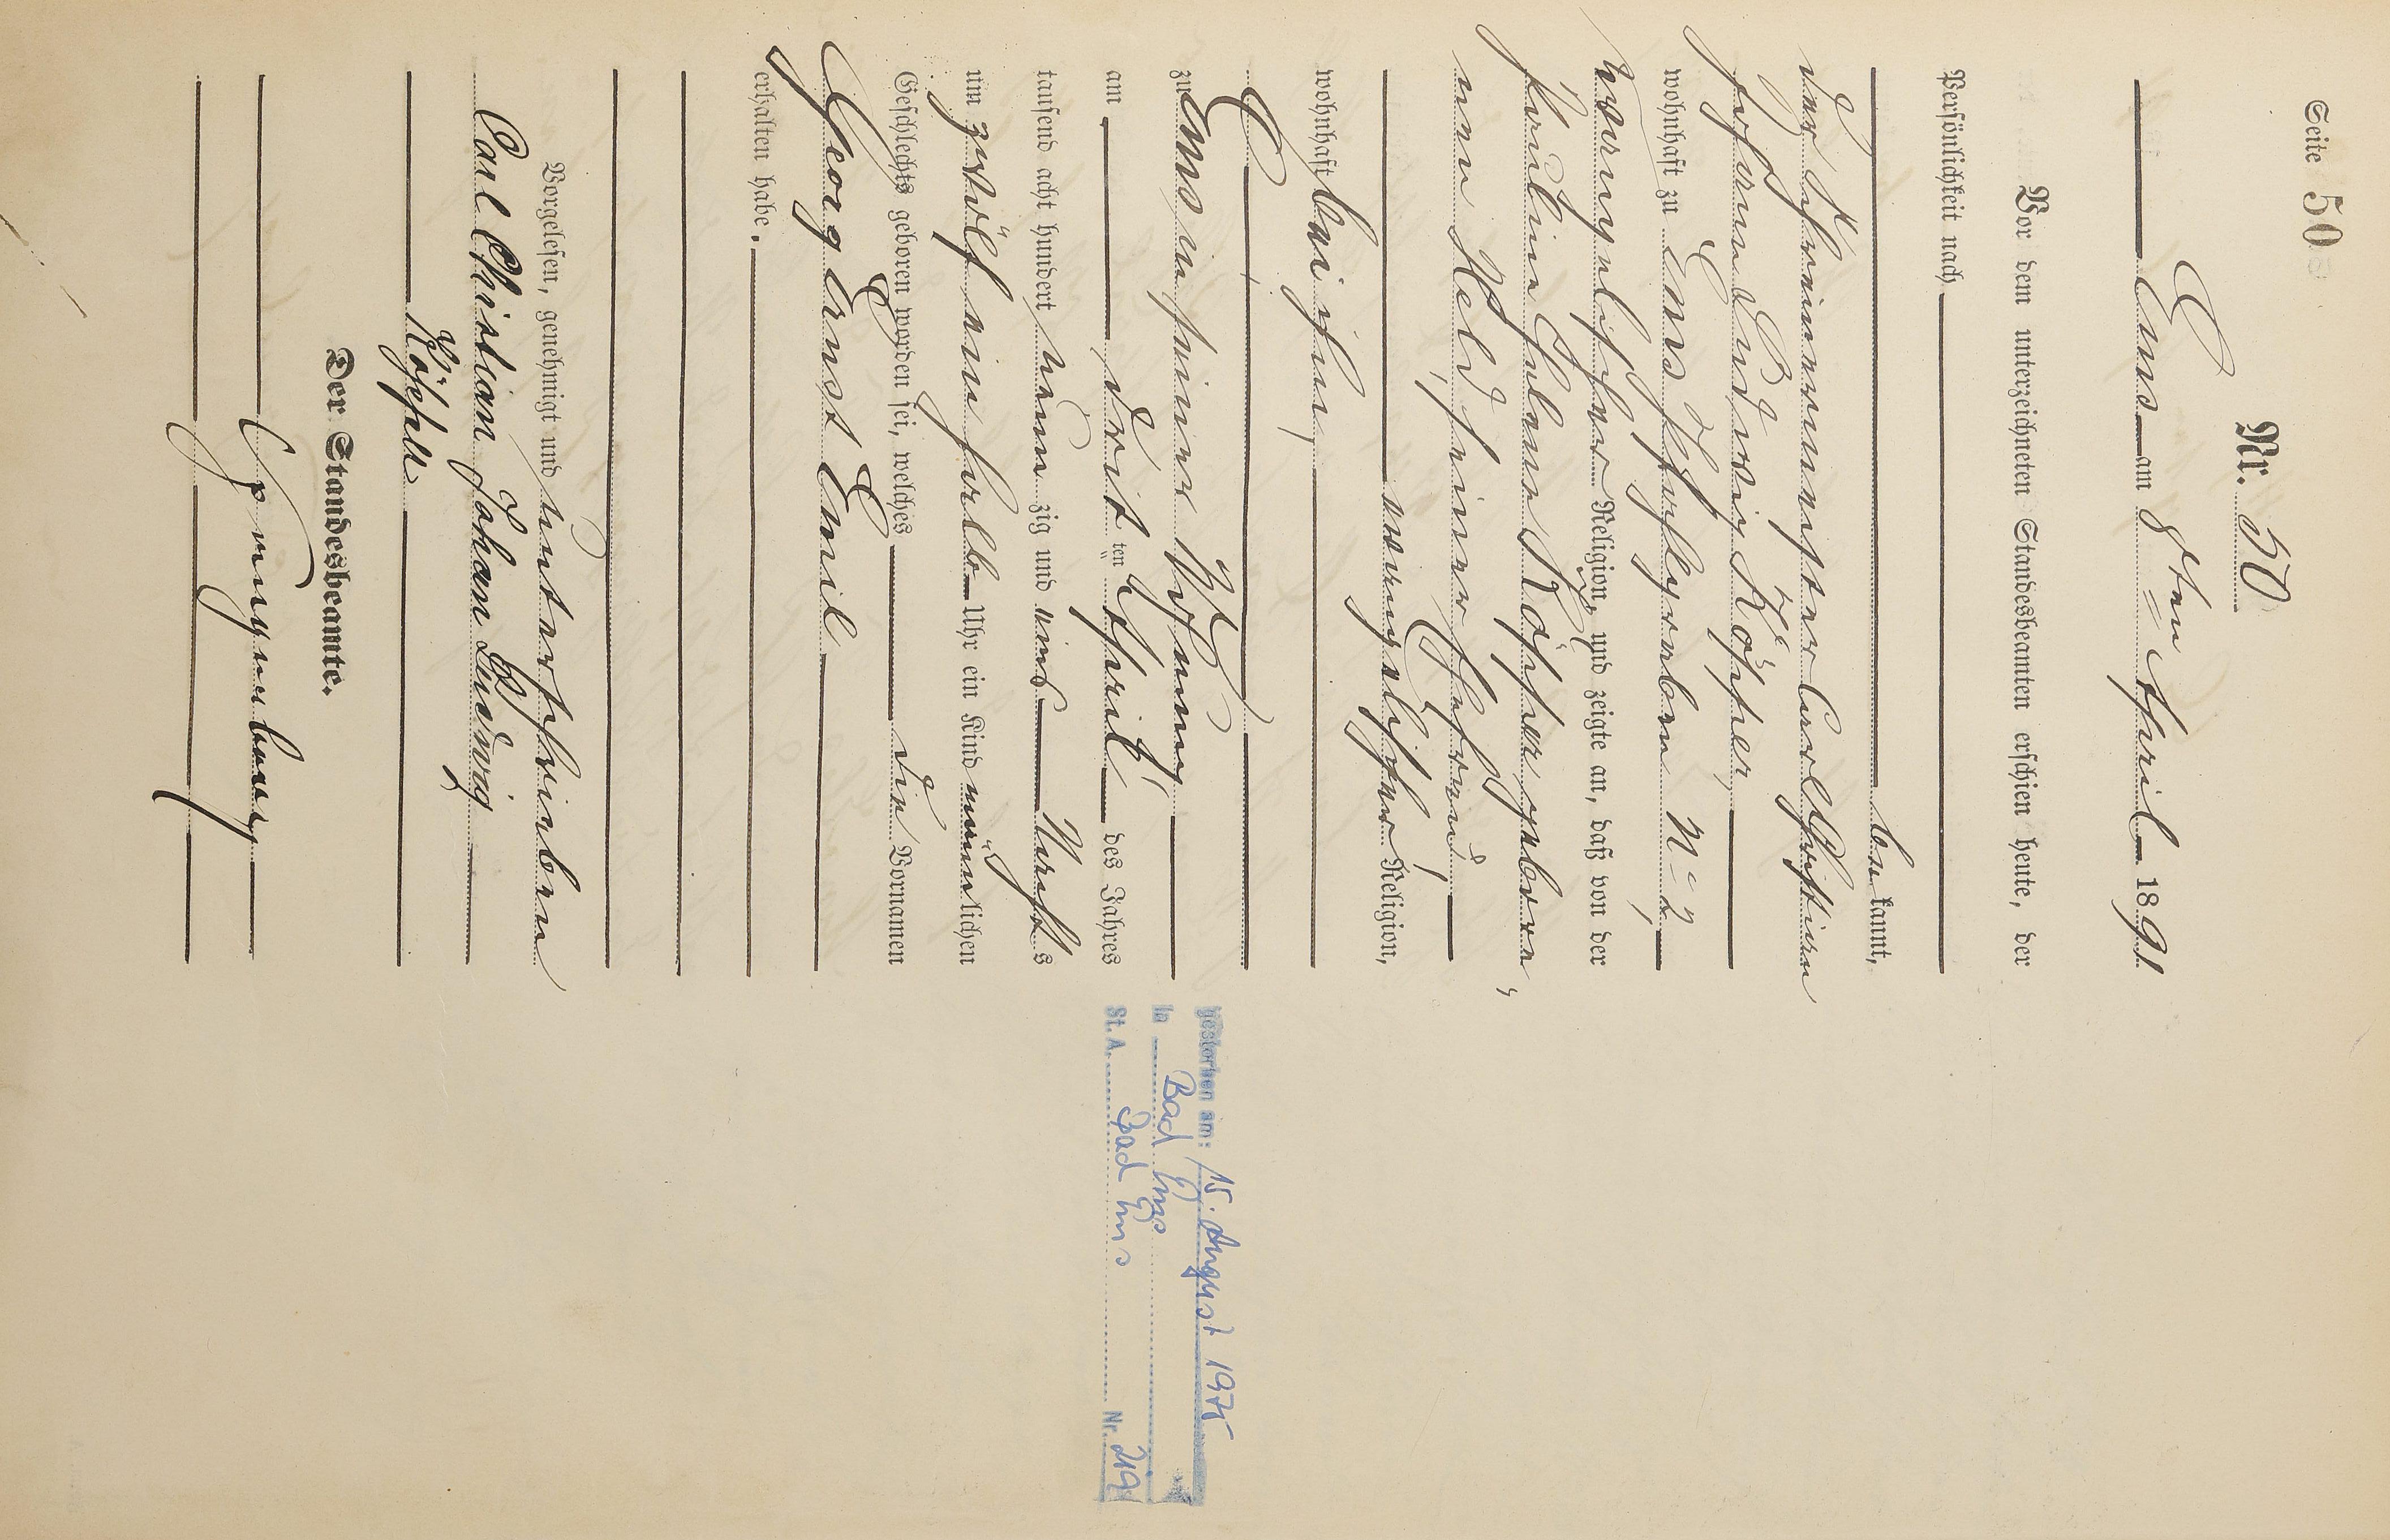 Seite 50
Nr. 50
Ems am 8ten April 1891
Vor dem unterzeichneten Standesbeamten erschien heute, der
Persönlichkeit nach
bekannt,
der Schreinermeister Carl Christian
Johann Ludwig
wohnhaft zu Ems
evangelischer Religion, und zeigte an, daß von der
geborne
Held, seiner Ehefrau,
evangelischer Religion,
wohnhaft bei ihm,
zu Ems in seiner Wohnung
am drit ten April des Jahres
tausend acht hundert neun zig und eins Nachts
um zwölf ein halb Uhr ein Kind männlichen
Geschlechts geboren worden sei, welches die Vornamen
Georg Ernst Emil
erhalten habe.
Vorgelesen, genehmigt und unterschrieben
Carl Christian Johan Ludwig
Der Standesbeamte.
gestorben am: 15. August 1975
in Bad Ems
St. A. Bad Ems Nr. 219